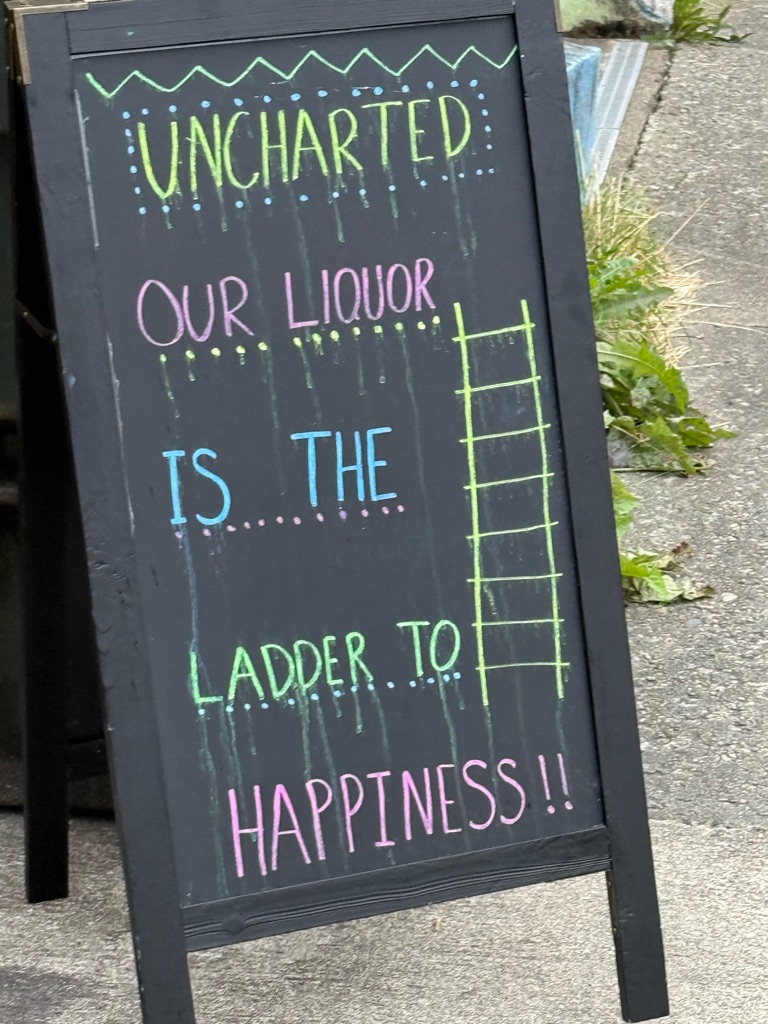 UNCHARTED
OUR LIQUOR
IS THE
LADDER TO
HAPPINESS!!